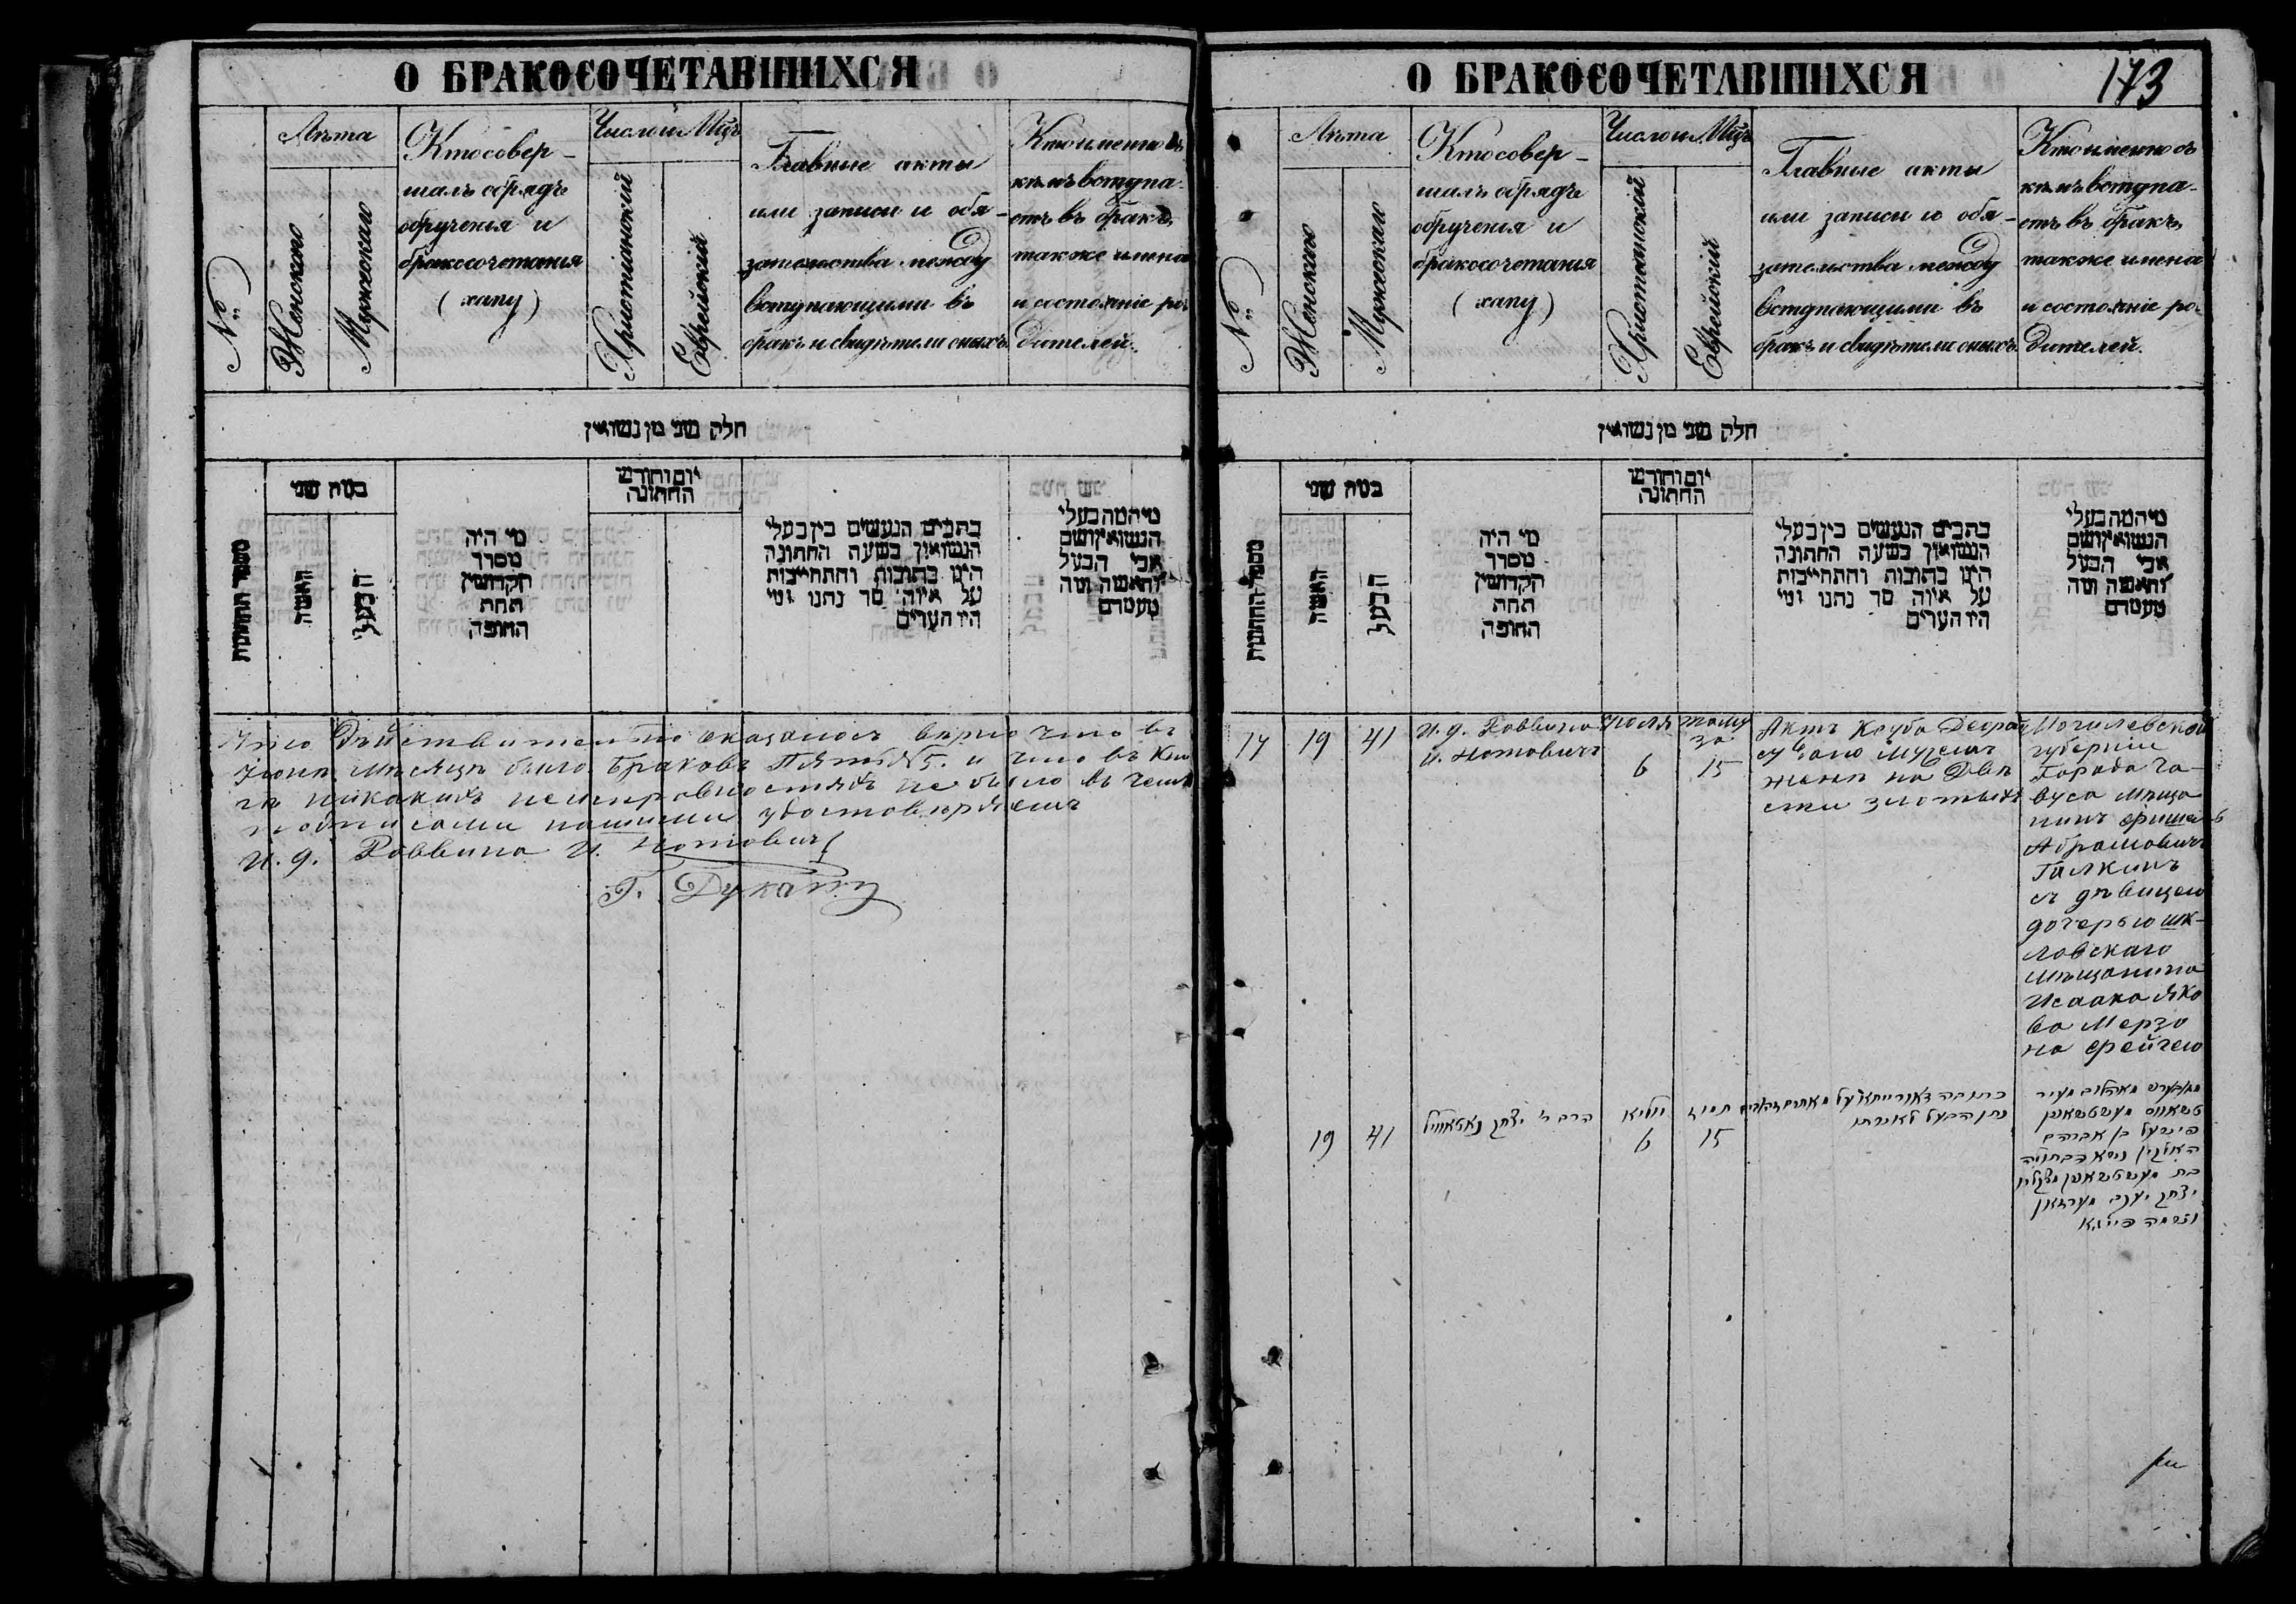 О БРАКОСОЧЕТАВШИХСЯ
№
Лѣта
Женскаго
Мужескаго
Кто совер-
шалъ обрядъ
обрученія и
бракосочетанія
(хапу)
Число и Мѣц.
Христіанскій
Еврейскій
Главные акты
или записи и обя-
зательства между
вступающими въ
бракъ и свидѣтели оныхъ.
Кто именно съ
кѣмъ вступа-
етъ въ бракъ,
также имена
и состояніе ро-
дителей.
חלק שני מן נשואין
מספר החתונות
כמה שני
האשה
הבעל
מי היה
מסדר
הקדושין
תחת
החופה
יום וחודש
החתונה
כתבים הנעשים בין בעלי
הנשואין בשעה החתונה
היינו כתובות והתחייבות
על איזה סך נתנו ומי
היו העדים
מי המה בעלי
הנשואין ושם
אבי הבעל
והאשה ומה
מעמדם
Что дѣйствительно оказалось вѣрно что въ
Іюнѣ мѣсяцѣ было браковъ Пять №5. и что въ кни
гѣ никакихъ неисправностяхъ не было въ чемъ
подписами нашими удостовѣряемъ
И. д. Раввина И. Нотовичъ
Г. Дукатъ
О БРАКОСОЧЕТАВШИХСЯ
173
№
Лѣта
Женскаго
Мужескаго
Кто совер-
шалъ обрядъ
обрученія и
бракосочетанія
(хапу)
Число и Мѣц.
Христіанскій
Еврейскій
Главные акты
или записи и обя-
зательства между
вступающими въ
бракъ и свидѣтели оныхъ.
Кто именно съ
кѣмъ вступа-
етъ въ бракъ,
также имена
и состояніе ро-
дителей.
חלק שני מן נשואין
מספר החתונות
כמה שני
האשה
הבעל
מי היה
מסדר
הקדושין
תחת
החופה
יום וחודש
החתונה
כתבים הנעשים בין בעלי
הנשואין בשעה החתונה
היינו כתובות והתחייבות
על איזה סך נתנו ומי
היו העדים
מי המה בעלי
הנשואין ושם
אבי הבעל
והאשה ומה
מעמדם
14 19 41
И. д. Раввина
И. Нотовичъ
Іюля
6
таму
за
15
Актъ
данъ мужемъ
женѣ на двѣ
сти злотыхъ
Могилевской
губерніи
Города Ча-
вуса мѣща
нинъ Фишель
Абрамовичъ
Галкинъ
съ дѣвицею
дочерью шк-
ловскаго
мѣщанина
Исаака Яко
ва Мерзо
на Фейгею
19 41
הרב ר' יצחק נאטאוויץ
יוליא
6
תמוז
15
כתובה דאורייתא על מאתים זהובים
נתן הבעל לאשתו
טשאוס מעשטשאנין
פישעל בן אברהם
האלקין נשא הבתולה
בת מעשטשאנין
יצחק יעקב מערזאן
ושמה פייגא